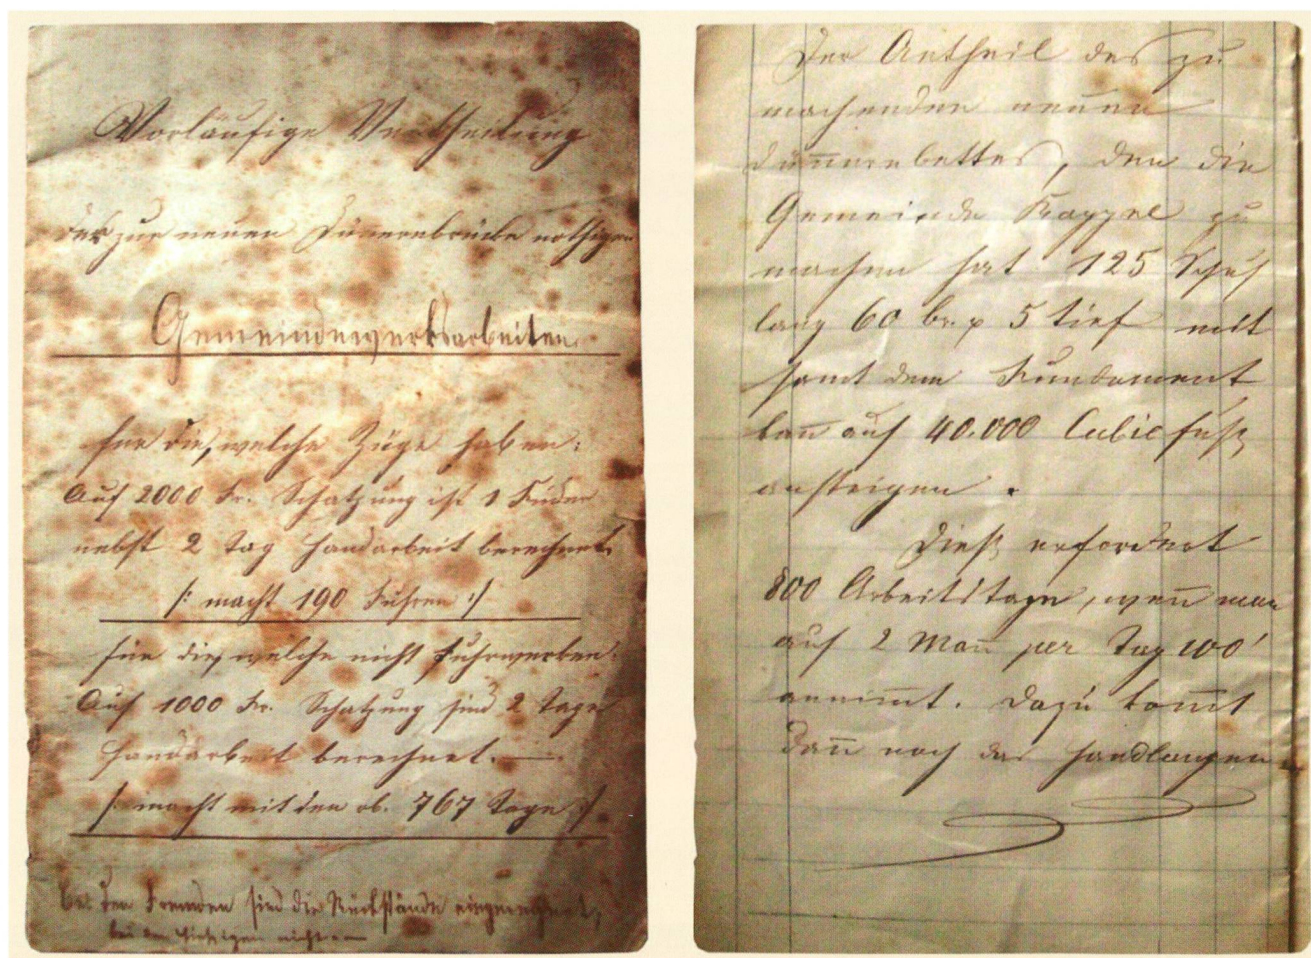 Vorläufige Vertheilung
der zur neuen Dünnernbrücke nöthigen
Gemeindewerksarbeiten.
für die, welche Züge haben:
Auf 2000 Fr. Schatzung ist 1 Fuder
nebst 2 Tag Handarbeit berechnet.
/: macht 190 Fuhren :/
für die, welche nicht Fuhrwerken:
Auf 1000 Fr. Schatzung sind 2 Tage
Handarbeit berechnet. —
/: macht mit den ob. 767 Tage :/
bei den Fremden sind die Rückstände eingerechnet,
bei den hiesigen nicht. —
Der Antheil des zu
machenden neuen
Dünnernbettes, den die
Gemeinde Kappel zu
machen hat 125 Schuh
lang 60 br. 5 tief mit
samt dem Fundament
kan̄ auf 40.000 Cubicfuß
ansteigen.
Dieß erfordert
800 Arbeitstage, wen̄ man
auf 2 Man̄ per Tag 100'
annim̄t. Dazu kom̄t
dan̄ noch das Handlangen